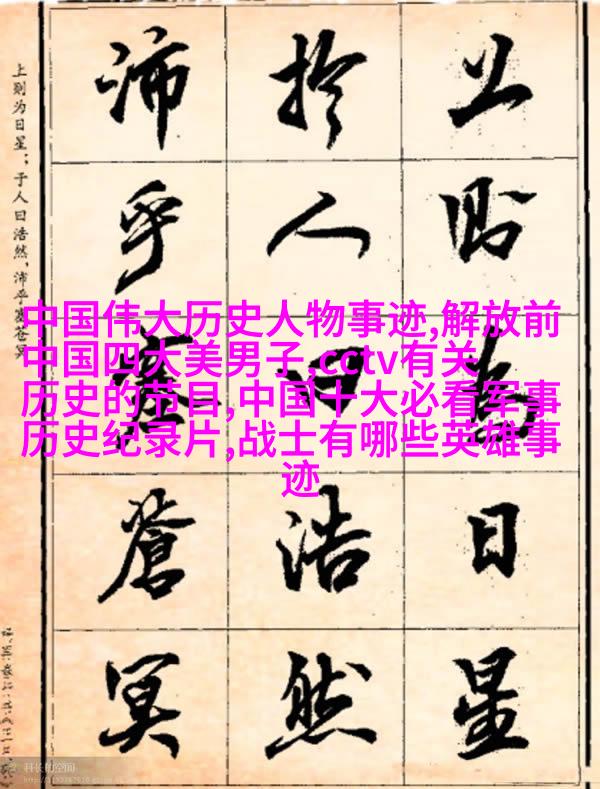 中国伟大历史人物事迹,解放前
中国四大美男子,cctv有关
历史的节目,中国十大必看军事
历史纪录片,战士有哪些英雄事
迹
上则為日星
於人曰浩然
沛乎塞蒼冥
上则为日星；于人曰浩然，沛乎塞苍冥
科长的空间